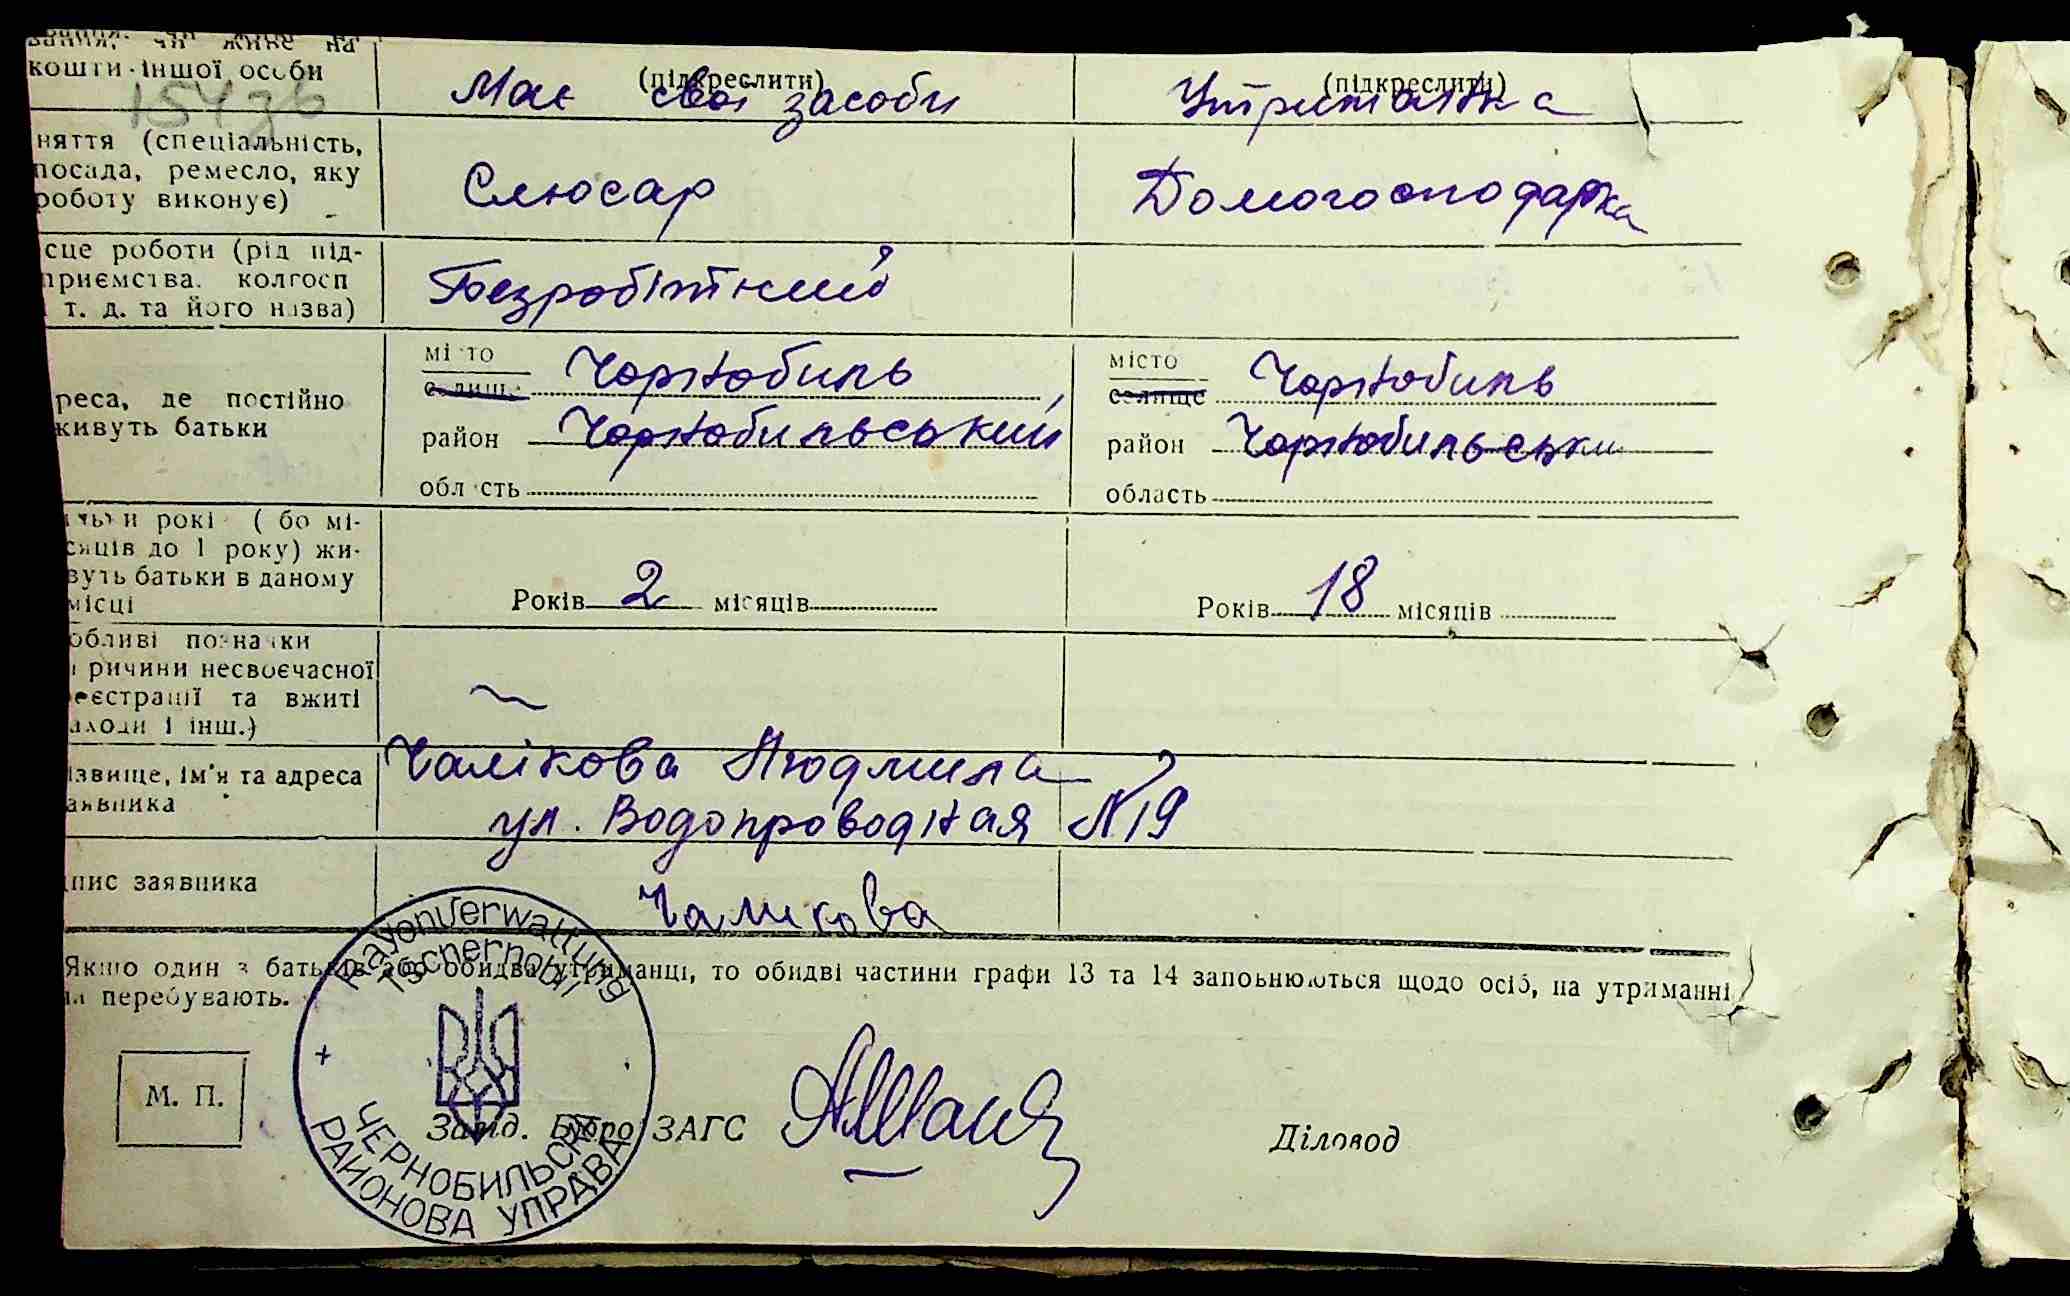 вання, чи живе на
кошти іншої особи
(підкреслити)
(підкреслити)
Має свої засоби
Утриманка
няття (спеціальність,
посада, ремесло, яку
роботу виконує)
Слюсар
Домогосподарка
сце роботи (рід під-
приємства, колгосп
т. д. та його назва)
Безробітний
реса, де постійно
живуть батьки
місто
селище
Чорнобиль
район Чорнобильський
область
місто
селище
Чорнобиль
район Чорнобильськи
область
льки рокі ( бо мі-
сяців до 1 року) жи-
вуть батьки в даному
місці
Років 2 місяців
Років 18 місяців
обливі позначки
ричини несвоєчасної
реєстрації та вжиті
аходи і інш.)
ізвище, ім'я та адреса
аявника
Чалікова Людмила
ул. Водопроводная №19
пис заявника
Чаликова
Якщо один з батьків або обидва утриманці, то обидві частини графи 13 та 14 заповнюються щодо осіб, на утриманні
перебувають.
М. П.
Rayonverwaltung
Tschernobil
ЧЕРНОБИЛЬСКА
РАЙОНОВА УПРАВА
Завід. Бюро ЗАГС
Діловод